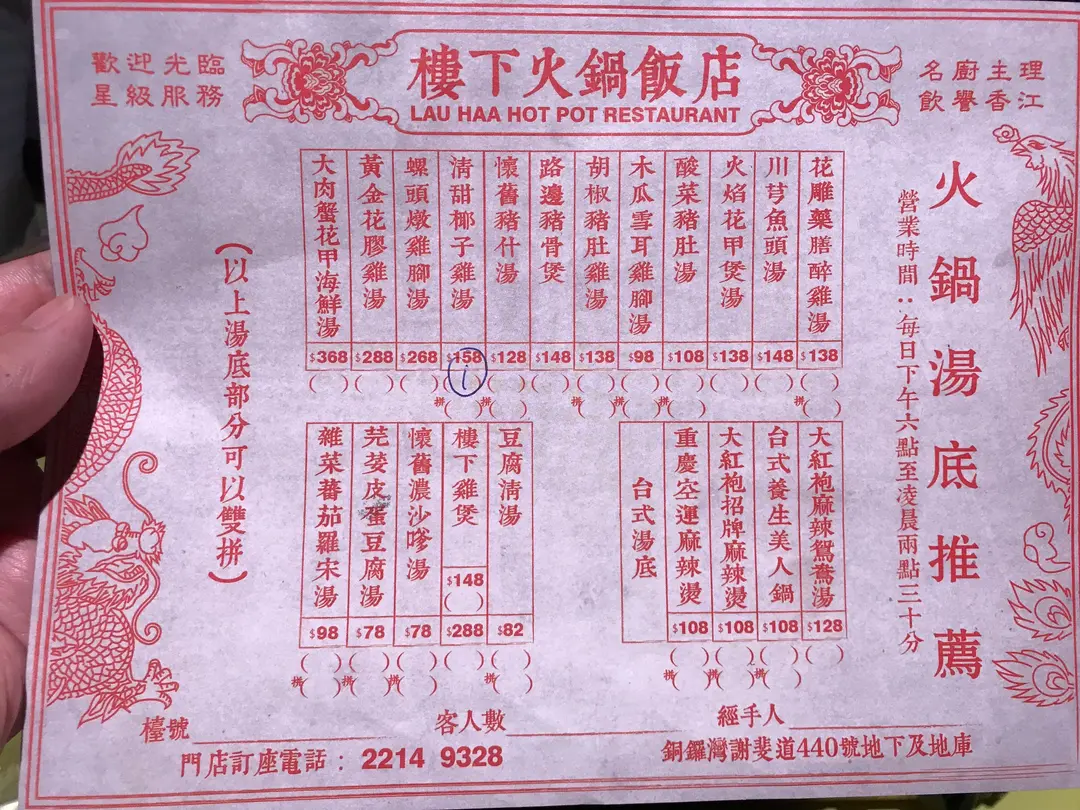 歡迎光臨
星級服務
樓下火鍋飯店
LAU HAA HOT POT RESTAURANT
名廚主理
飲譽香江
火鍋湯底推薦
營業時間：每日下午六點至凌晨兩點三十分
花雕藥膳醉雞湯 $138 ( )
拼( )
川芎魚頭湯 $148 ( )
火焰花甲煲湯 $138 ( )
酸菜豬肚湯 $108 ( )
拼( )
木瓜雪耳雞腳湯 $98 ( )
拼( )
胡椒豬肚雞湯 $138 ( )
拼( )
路邊豬骨煲 $148 ( )
懷舊豬什湯 $128 ( )
拼( )
清甜椰子雞湯 $158 ( )
拼( )
螺頭燉雞腳湯 $268 ( )
黃金花膠雞湯 $288 ( )
大肉蟹花甲海鮮湯 $368 ( )
大紅袍麻辣鴛鴦湯 $128 ( )
台式養生美人鍋 $108 ( )
拼( )
大紅袍招牌麻辣燙 $108 ( )
拼( )
重慶空運麻辣燙 $108 ( )
拼( )
台式湯底
豆腐清湯 $82 ( )
拼( )
樓下雞煲 $148 ( ) $288 ( )
懷舊濃沙嗲湯 $78 ( )
拼( )
芫荽皮蛋豆腐湯 $78 ( )
拼( )
雜菜蕃茄羅宋湯 $98 ( )
拼( )
(以上湯底部分可以雙拼)
檯號
客人數
經手人
門店訂座電話：2214 9328
銅鑼灣謝斐道440號地下及地庫